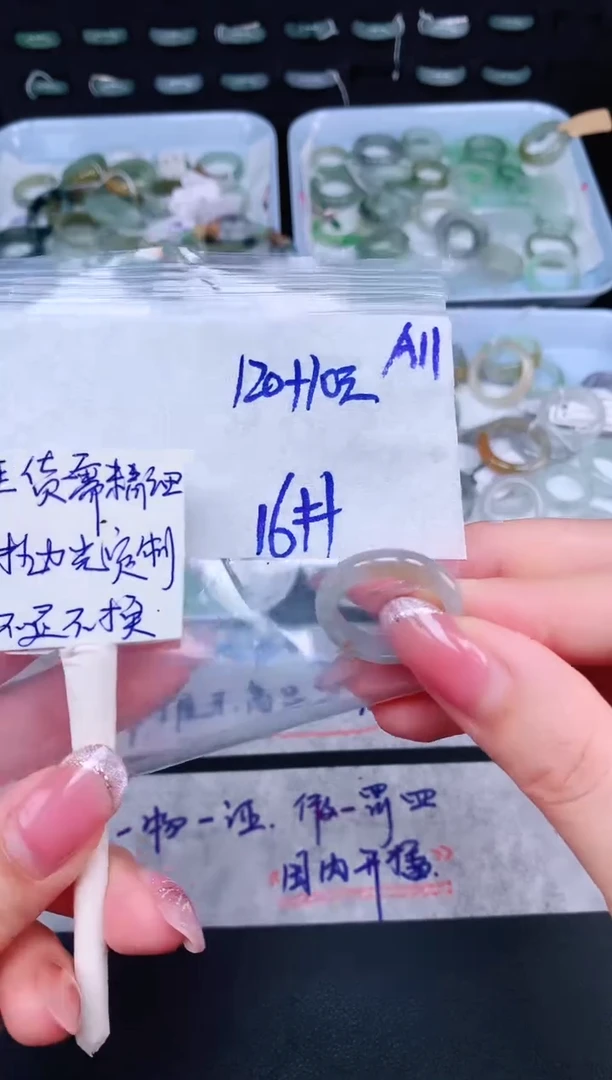 A11
120+10元
16#
货需精细
抛光定制
不退不换
一物一证.假一罚四
国内开播